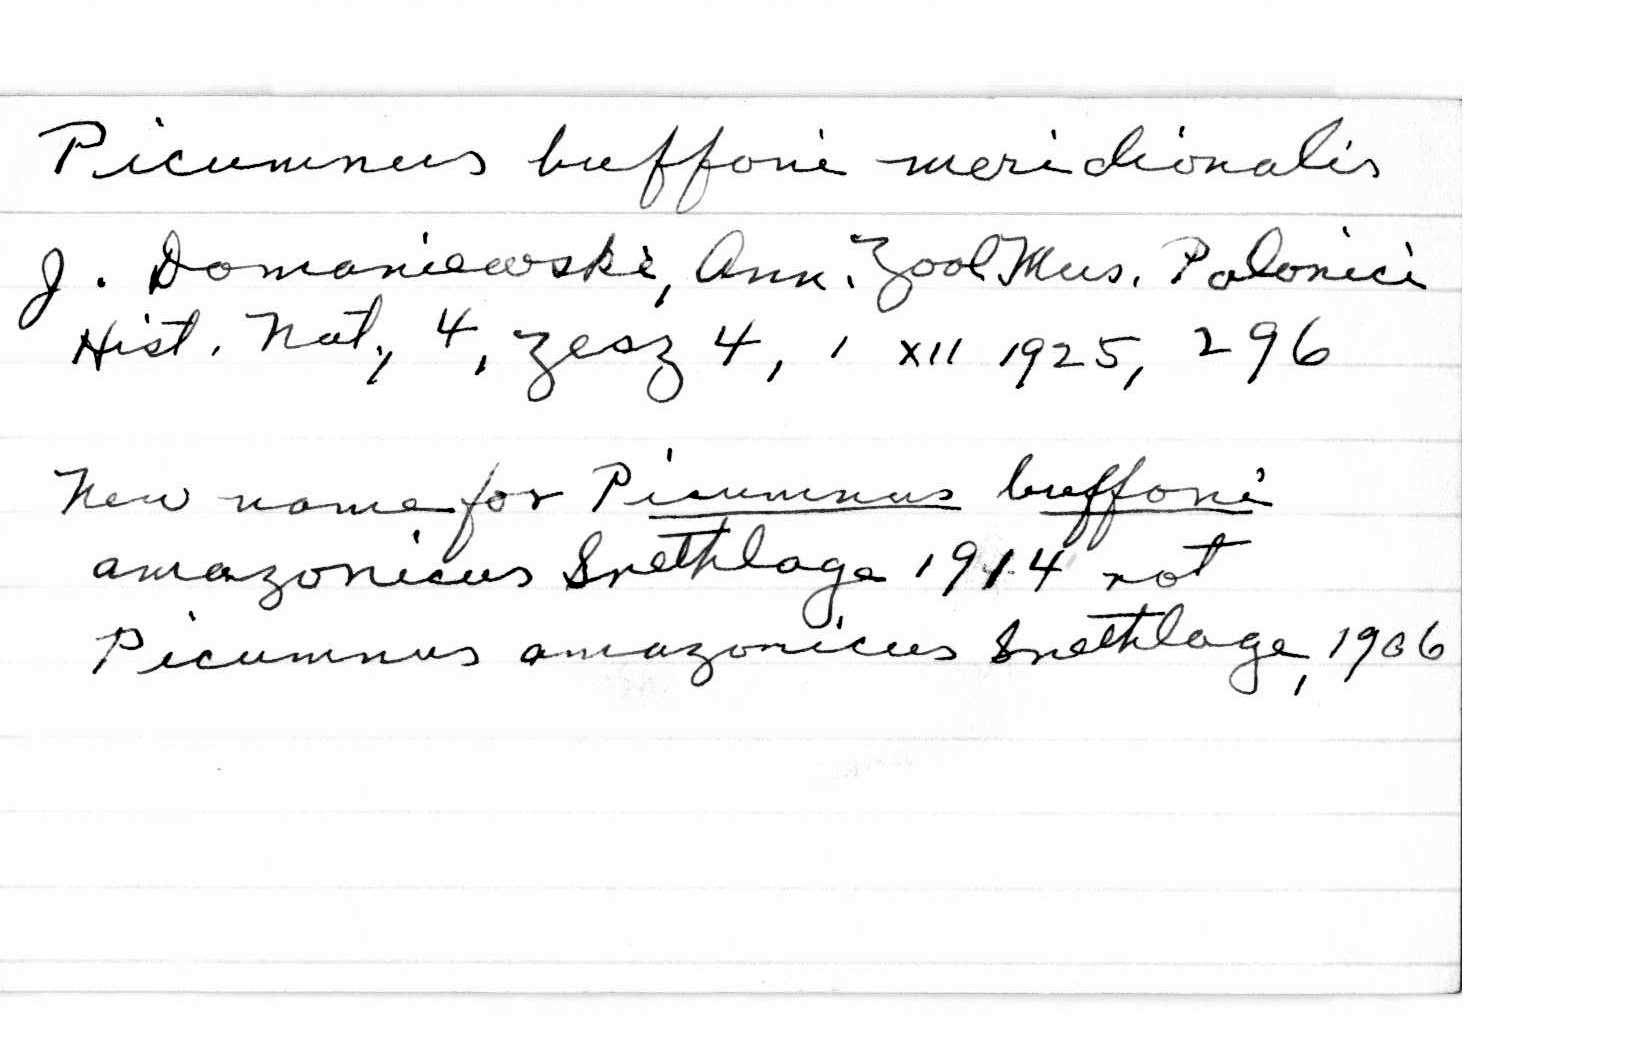 Picumnus buffoni meridionalis
J. Domaniewski, Ann. Zool Mus. Polonici
Hist. Nat., 4, zesz 4, 1 XII 1925, 296
New name for Picumnus buffoni
amazonicus Snethlage 1914 not
Picumnus amazonicus Snethlage, 1906